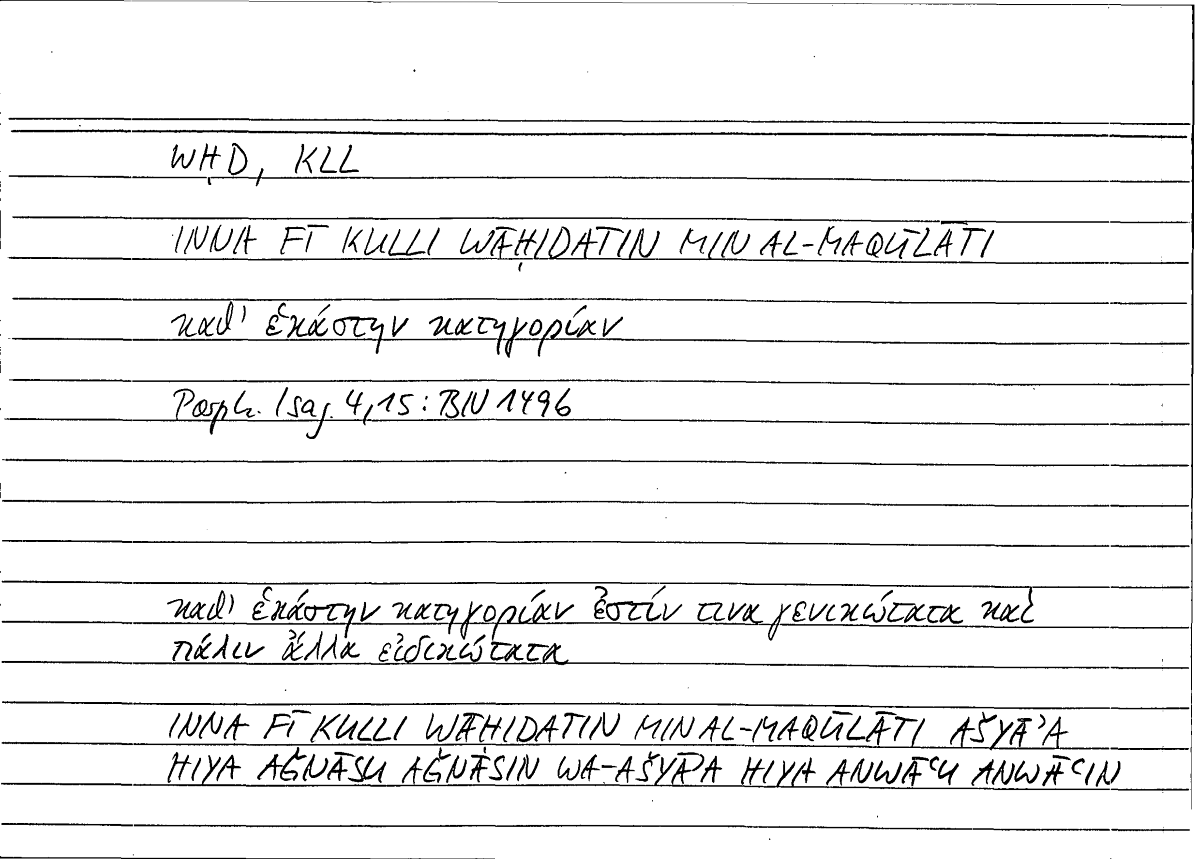 WḤD, KLL
INNA FĪ KULLI WĀḤIDATIN MIN AL-MAQŪLĀTI
καθ' ἑκάστην κατηγορίαν
Porph. Isag. 4,15: BN 1496
καθ' ἑκάστην κατηγορίαν ἐστίν τινα γενικώτατα καὶ
πάλιν ἄλλα εἰδικώτατα
INNA FĪ KULLI WĀḤIDATIN MIN AL-MAQŪLĀTI AŠYĀʾA
HIYA AǦNĀSU AǦNĀSIN WA-AŠYĀʾA HIYA ANWĀʿU ANWĀʿIN